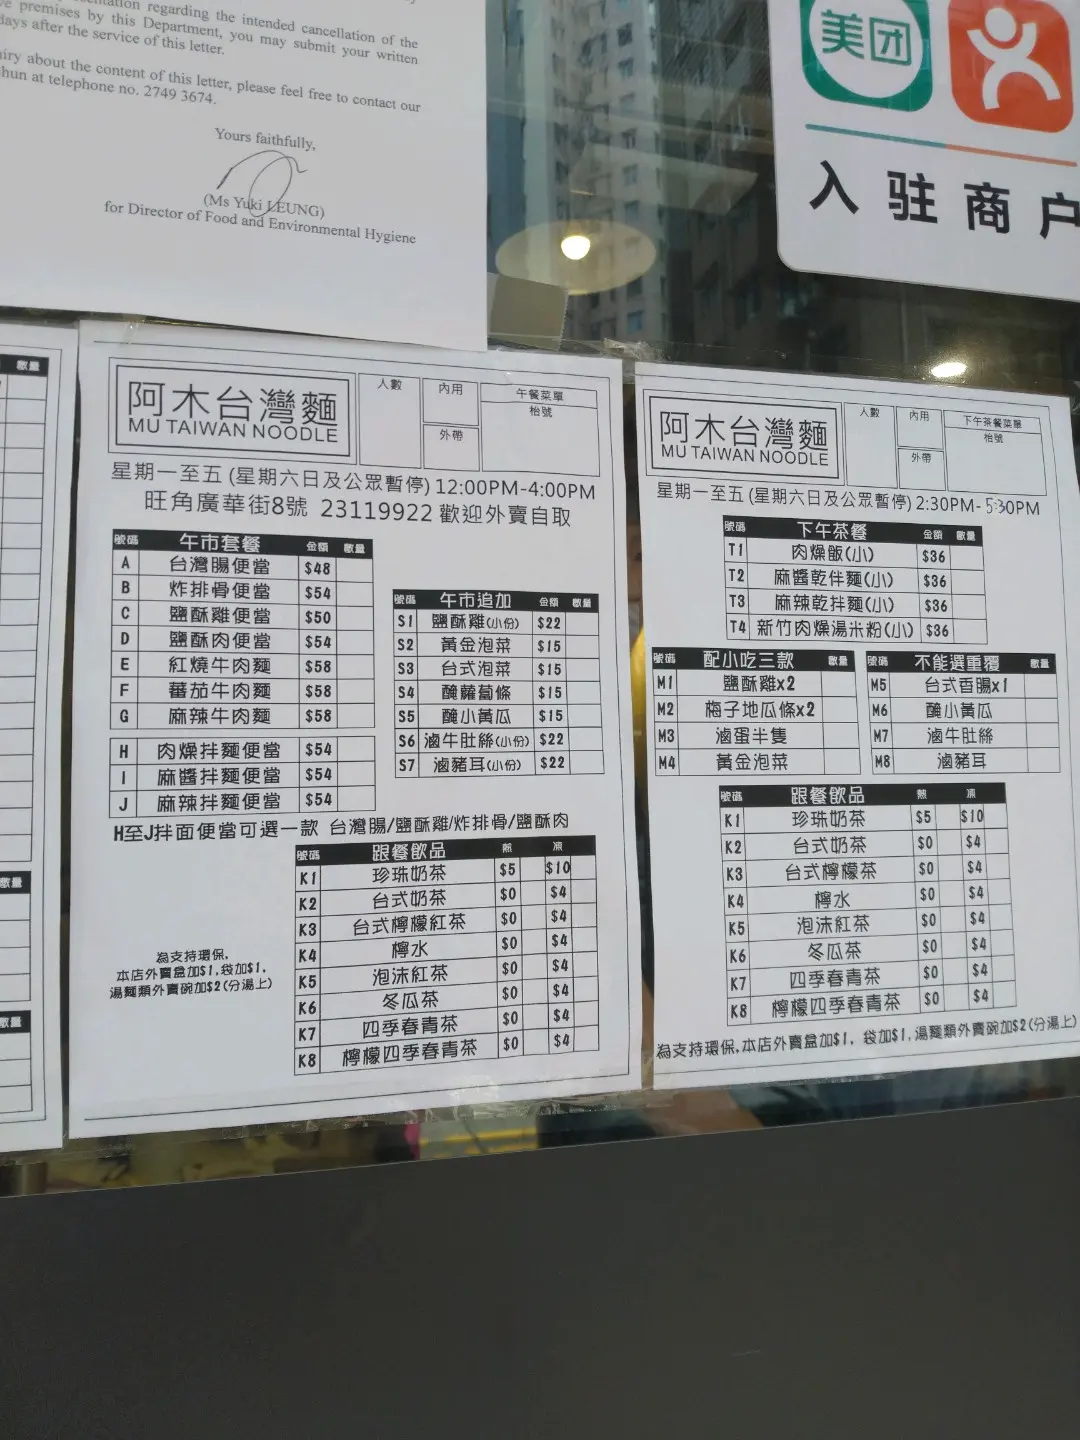 regarding the intended cancellation of the
premises by this Department, you may submit your written
days after the service of this letter.
about the content of this letter, please feel free to contact our
at telephone no. 2749 3674.
Yours faithfully,
(Ms Yuki LEUNG)
for Director of Food and Environmental Hygiene
美团
入驻商户
數量
數量
數量
阿木台灣麵
MU TAIWAN NOODLE
人數
內用
外帶
午餐菜單
枱號
星期一至五 (星期六日及公眾暫停) 12:00PM-4:00PM
旺角廣華街8號 23119922 歡迎外賣自取
號碼 午市套餐 金額 數量
A 台灣腸便當 $48
B 炸排骨便當 $54
C 鹽酥雞便當 $50
D 鹽酥肉便當 $54
E 紅燒牛肉麵 $58
F 蕃茄牛肉麵 $58
G 麻辣牛肉麵 $58
H 肉燥拌麵便當 $54
I 麻醬拌麵便當 $54
J 麻辣拌麵便當 $54
號碼 午市追加 金額 數量
S1 鹽酥雞(小份) $22
S2 黃金泡菜 $15
S3 台式泡菜 $15
S4 醃蘿蔔條 $15
S5 醃小黃瓜 $15
S6 滷牛肚絲(小份) $22
S7 滷豬耳(小份) $22
H至J拌面便當可選一款 台灣腸/鹽酥雞/炸排骨/鹽酥肉
號碼 跟餐飲品 熱 凍
K1 珍珠奶茶 $5 $10
K2 台式奶茶 $0 $4
K3 台式檸檬紅茶 $0 $4
K4 檸水 $0 $4
K5 泡沫紅茶 $0 $4
K6 冬瓜茶 $0 $4
K7 四季春青茶 $0 $4
K8 檸檬四季春青茶 $0 $4
為支持環保,
本店外賣盒加$1,袋加$1,
湯麵類外賣碗加$2(分湯上)
阿木台灣麵
MU TAIWAN NOODLE
人數
內用
外帶
下午茶餐菜單
枱號
星期一至五 (星期六日及公眾暫停) 2:30PM- 5:30PM
號碼 下午茶餐 金額 數量
T1 肉燥飯(小) $36
T2 麻醬乾伴麵(小) $36
T3 麻辣乾拌麵(小) $36
T4 新竹肉燥湯米粉(小) $36
號碼 配小吃三款 數量
M1 鹽酥雞x2
M2 梅子地瓜條x2
M3 滷蛋半隻
M4 黃金泡菜
號碼 不能選重覆 數量
M5 台式香腸x1
M6 醃小黃瓜
M7 滷牛肚絲
M8 滷豬耳
號碼 跟餐飲品 熱 凍
K1 珍珠奶茶 $5 $10
K2 台式奶茶 $0 $4
K3 台式檸檬茶 $0 $4
K4 檸水 $0 $4
K5 泡沫紅茶 $0 $4
K6 冬瓜茶 $0 $4
K7 四季春青茶 $0 $4
K8 檸檬四季春青茶 $0 $4
為支持環保,本店外賣盒加$1, 袋加$1,湯麵類外賣碗加$2(分湯上)